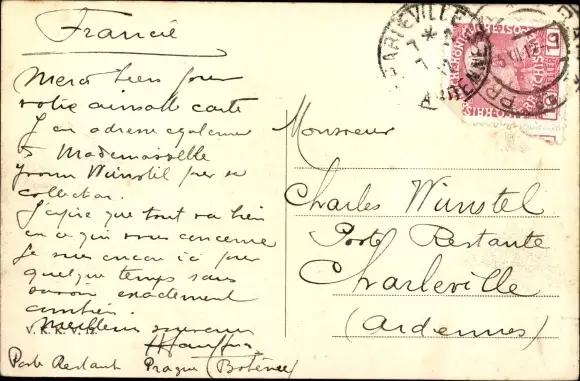 Francie
Merci bien pour
votre aimable carte
J'en adresse également
à Mademoiselle
Yvonne Wunstel pour sa
collection.
J'espère que tout va bien
en ce qui vous concerne
Je suis encore ici pour
quelque temps sans
savoir exactement
combien.
Meilleurs
Poste Restante Prague (Bohême)
V. K. K. V.
Monsieur
Charles Wunstel
Poste Restante
Charleville
(Ardennes)
CHARLEVILLE
ARDENNES